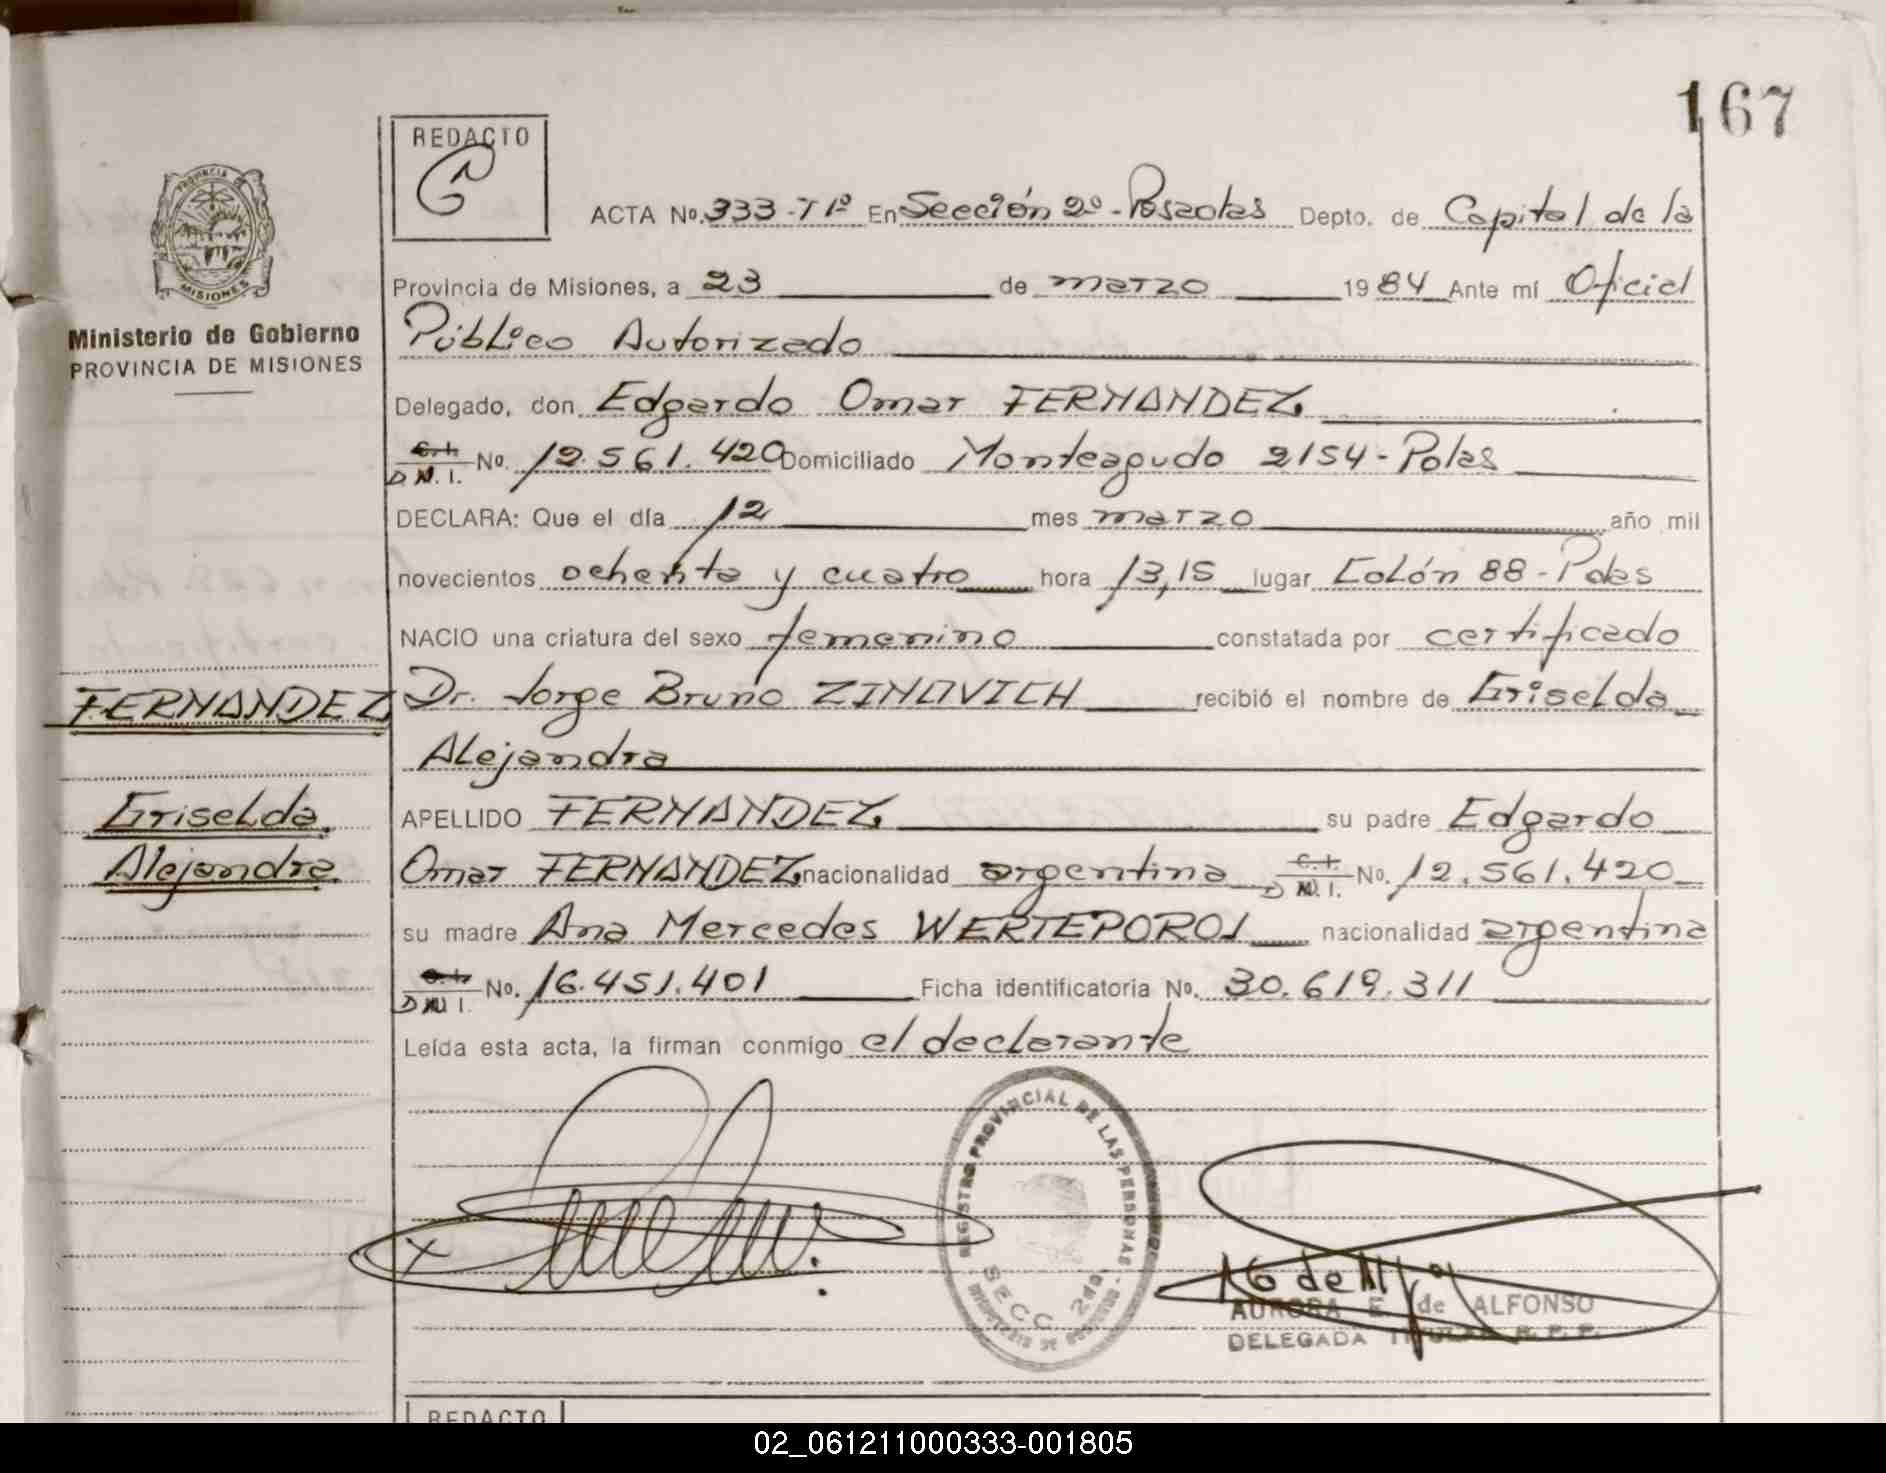 167
REDACTO
G
PROVINCIA DE
MISIONES
Ministerio de Gobierno
PROVINCIA DE MISIONES
ACTA No. 333-Tº1º En Sección 2º-Posadas Depto. de Capital de la
Provincia de Misiones, a 23 de marzo 1984 Ante mí Oficial
Público Autorizado
Delegado, don Edgardo Omar FERNANDEZ
C.I. D.N.I. No. 12.561.420 Domiciliado Monteagudo 2154-Pdas
DECLARA: Que el día 12 mes marzo año mil
novecientos ochenta y cuatro hora 13,15 lugar Colón 88-Pdas
NACIO una criatura del sexo femenino constatada por certificado
Dr. Jorge Bruno ZINOVICH recibió el nombre de Griselda
Alejandra
FERNANDEZ
Griselda
Alejandra
APELLIDO FERNANDEZ su padre Edgardo
Omar FERNANDEZ nacionalidad argentina C.I. D.N.I. No. 12.561.420
su madre Ana Mercedes WERTEPOROJ nacionalidad argentina
C.I. D.N.I. No. 16.451.401 Ficha identificatoria No. 30.619.311
Leída esta acta, la firman conmigo el declarante
REGISTRO PROVINCIAL DE LAS PERSONAS
SECC 2da
AURORA E. de ALFONSO
DELEGADA TITULAR R. P. P.
REDACTO
02_061211000333-001805